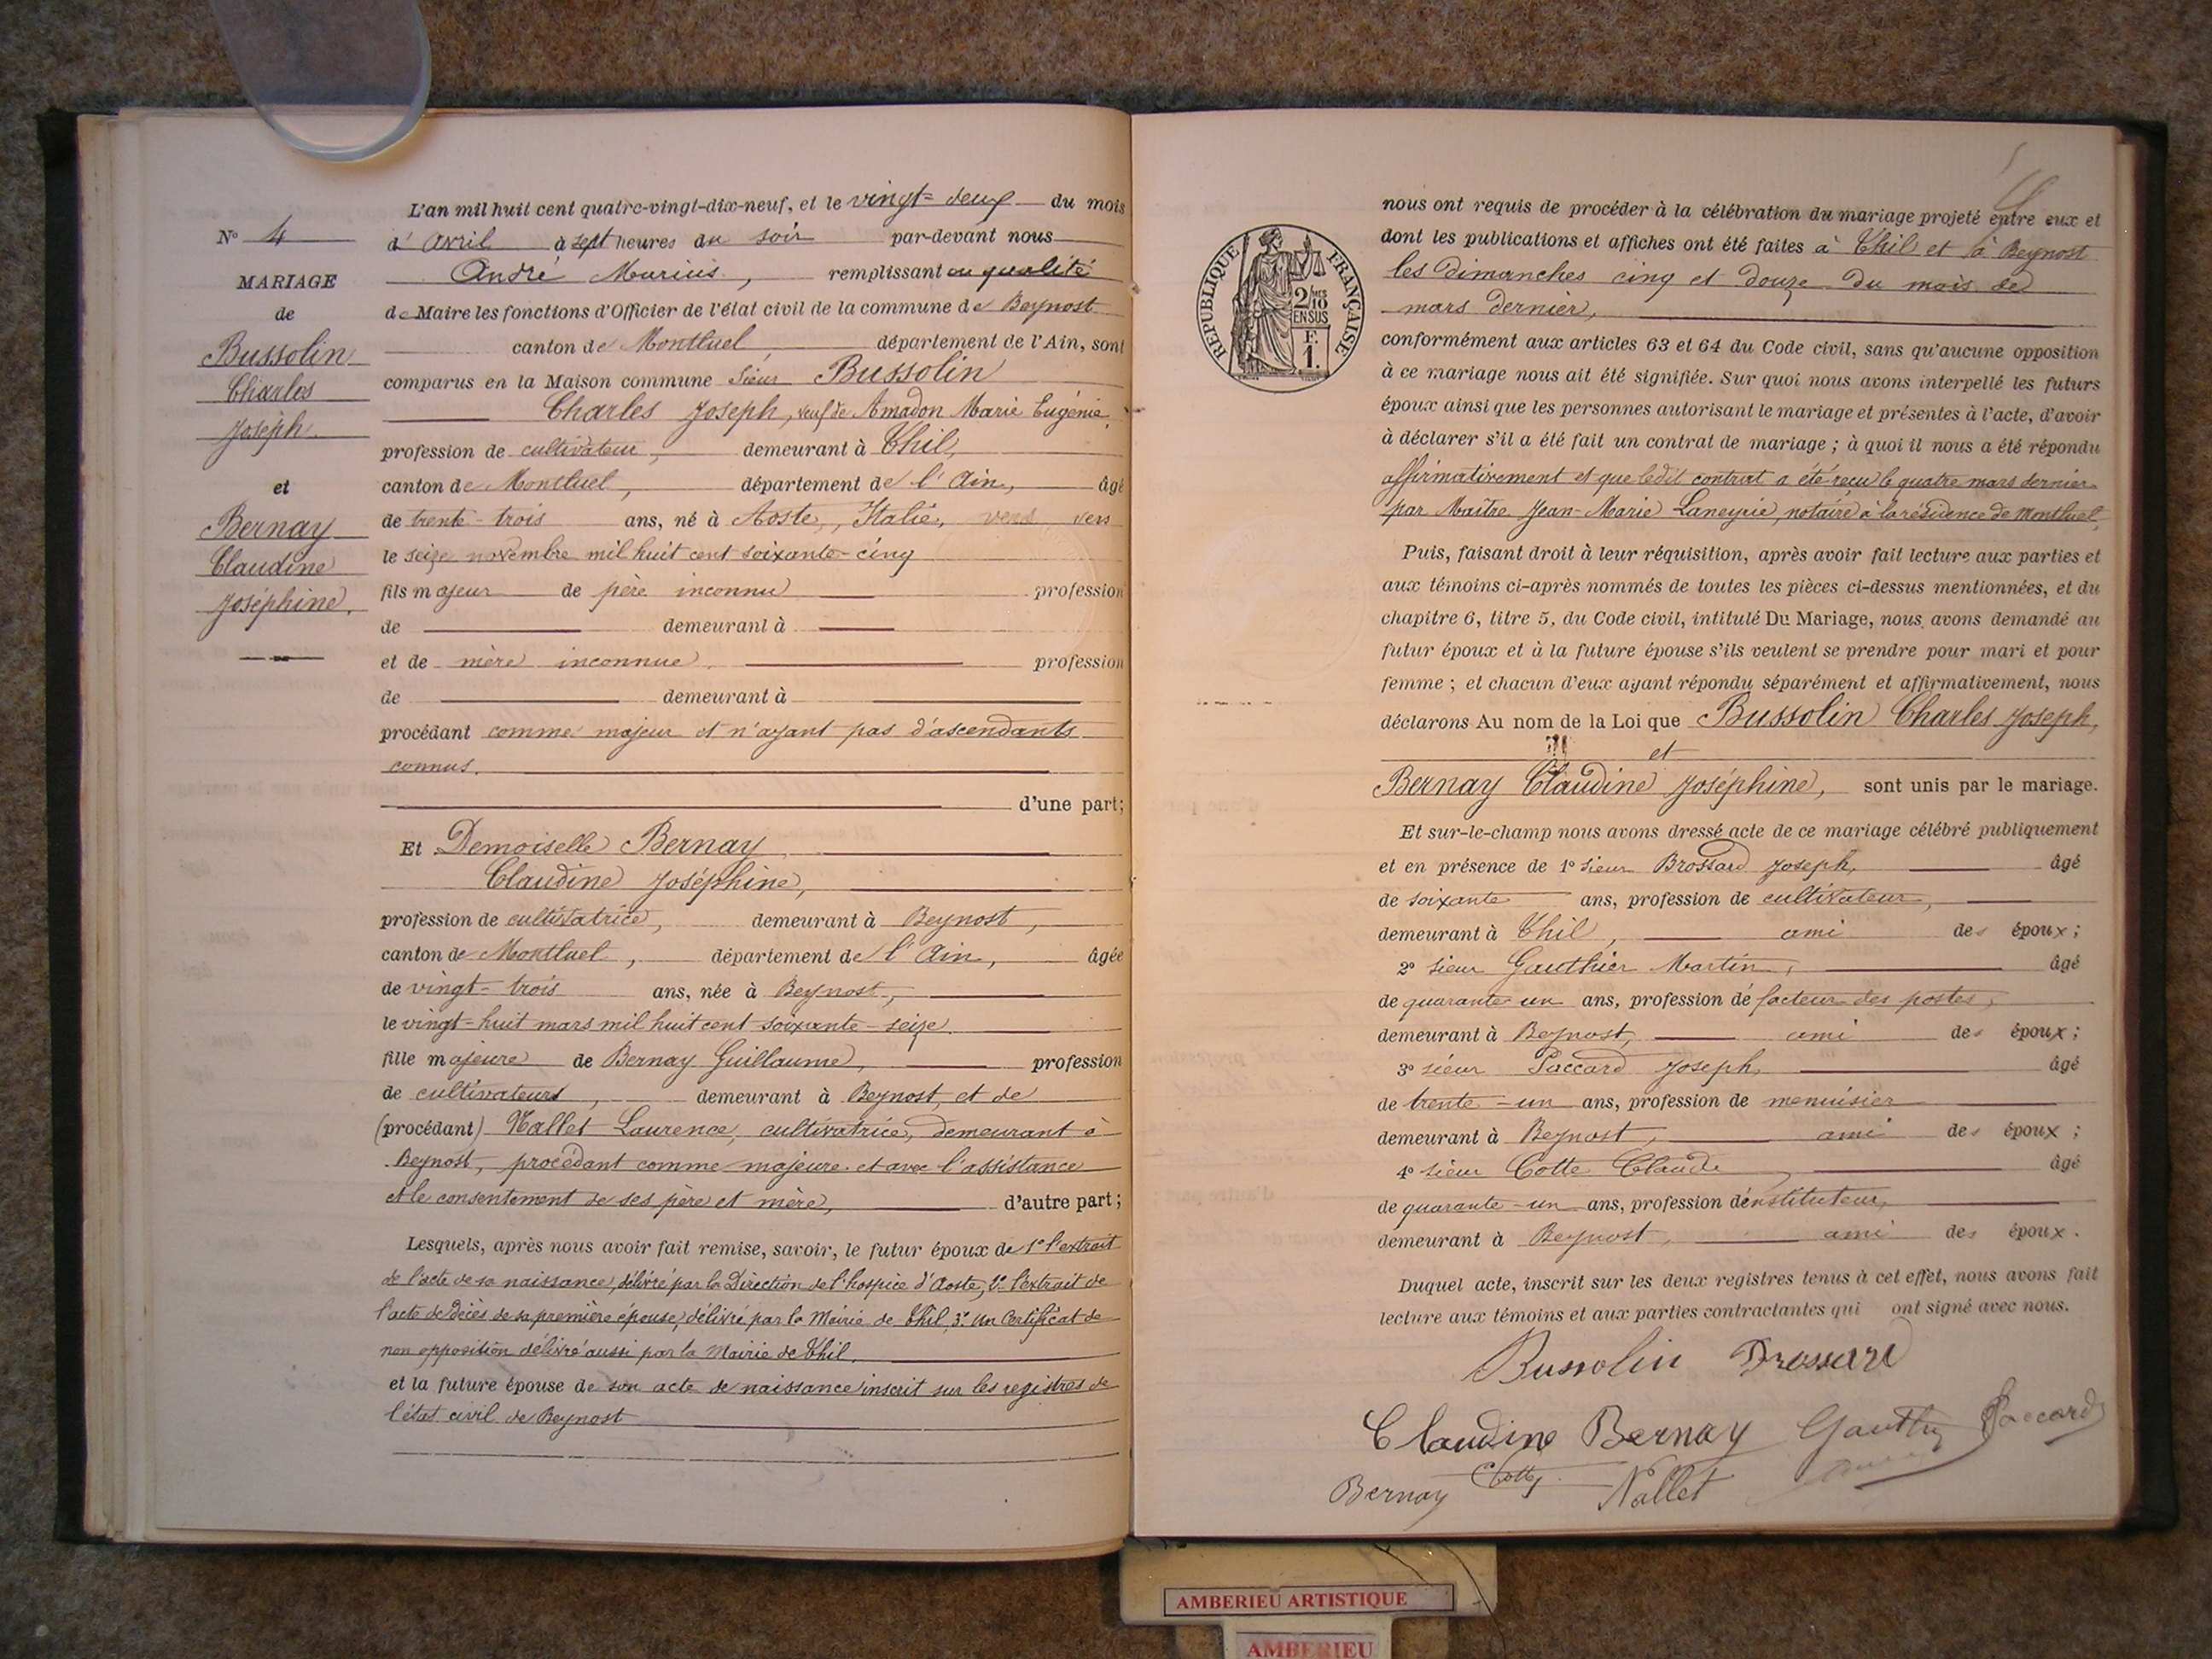 L'an mil huit cent quatre-vingt-dix-neuf, et le vingt-deux du mois
d'avril à sept heures du soir par-devant nous
André Marius, remplissant en qualité
de Maire les fonctions d'Officier de l'état civil de la commune de Beynost
canton de Montluel, département de l'Ain, sont
comparus en la Maison commune sieur Bussolin
Charles Joseph, veuf de Amadon Marie Eugénie,
profession de cultivateur, demeurant à Thil,
canton de Montluel, département de l'Ain, âgé
de trente-trois ans, né à Aoste, Italie, vers
le seize novembre mil huit cent soixante-cinq
fils majeur de père inconnu profession
de demeurant à
et de mère inconnue. profession
de demeurant à
procédant comme majeur et n'ayant pas d'ascendants
connus.
d'une part;
Et Demoiselle Bernay
Claudine Joséphine,
profession de cultivatrice, demeurant à Beynost,
canton de Montluel, département de l'Ain, âgée
de vingt-trois ans, née à Beynost,
le vingt-huit mars mil huit cent soixante-seize.
fille majeure de Bernay Guillaume, profession
de cultivateurs, demeurant à Beynost, et de
(procédant) Nallet Laurence, cultivatrice, demeurant à
Beynost, procédant comme majeure et avec l'assistance
et le consentement de ses père et mère, d'autre part;
Lesquels, après nous avoir fait remise, savoir, le futur époux de 1° l'extrait
de l'acte de sa naissance, délivré par la Direction de l'hospice d'Aoste, 2° l'extrait de
l'acte de décès de sa première épouse, délivré par la Mairie de Thil, 3° un Certificat de
non opposition délivré aussi par la Mairie de Thil.
et la future épouse de son acte de naissance inscrit sur les registres de
l'état civil de Beynost
N° 4
MARIAGE
de
Bussolin
Charles
Joseph
et
Bernay
Claudine
Joséphine.
nous ont requis de procéder à la célébration du mariage projeté entre eux et
dont les publications et affiches ont été faites à Thil et à Beynost
les dimanches cinq et douze du mois de
mars dernier,
conformément aux articles 63 et 64 du Code civil, sans qu'aucune opposition
à ce mariage nous ait été signifiée. Sur quoi nous avons interpellé les futurs
époux ainsi que les personnes autorisant le mariage et présentes à l'acte, d'avoir
à déclarer s'il a été fait un contrat de mariage ; à quoi il nous a été répondu
affirmativement et que ledit contrat a été reçu le quatre mars dernier
par Maître Jean-Marie Laneyrie, notaire à la résidence de Montluel,
Puis, faisant droit à leur réquisition, après avoir fait lecture aux parties et
aux témoins ci-après nommés de toutes les pièces ci-dessus mentionnées, et du
chapitre 6, titre 5, du Code civil, intitulé Du Mariage, nous avons demandé au
futur époux et à la future épouse s'ils veulent se prendre pour mari et pour
femme ; et chacun d'eux ayant répondu séparément et affirmativement, nous
déclarons Au nom de la Loi que Bussolin Charles Joseph,
et
Bernay Claudine Joséphine, sont unis par le mariage.
Et sur-le-champ nous avons dressé acte de ce mariage célébré publiquement
et en présence de 1° sieur Brossard Joseph, âgé
de soixante ans, profession de cultivateur,
demeurant à Thil, ami des époux ;
2° sieur Gauthier Martin, âgé
de quarante-un ans, profession de facteur des postes,
demeurant à Beynost, ami des époux ;
3° sieur Paccard Joseph, âgé
de trente-un ans, profession de menuisier
demeurant à Beynost, ami des époux ;
4° sieur Cotte Claude, âgé
de quarante-un ans, profession d'instituteur,
demeurant à Beynost, ami des époux.
Duquel acte, inscrit sur les deux registres tenus à cet effet, nous avons fait
lecture aux témoins et aux parties contractantes qui ont signé avec nous.
Bussolin Brossard
Claudine Bernay Gauthier Paccard
Bernay Cotte Nallet
RÉPUBLIQUE FRANÇAISE
2/10 MES
EN SUS
F.
1.
AMBERIEU ARTISTIQUE
AMBERIEU